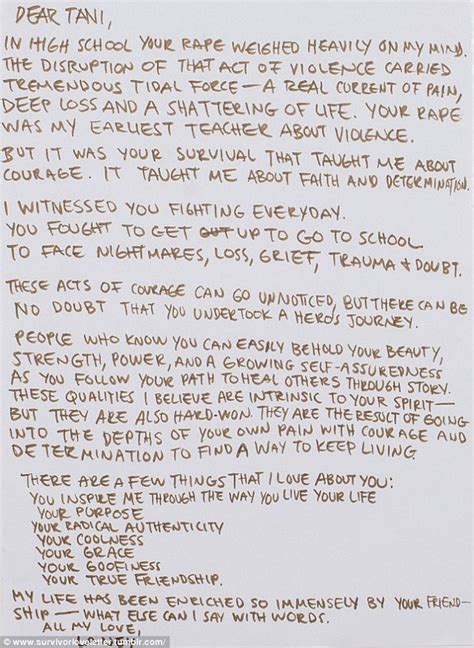 DEAR TANI,
IN HIGH SCHOOL YOUR RAPE WEIGHED HEAVILY ON MY MIND.
THE DISRUPTION OF THAT ACT OF VIOLENCE CARRIED
TREMENDOUS TIDAL FORCE — A REAL CURRENT OF PAIN,
DEEP LOSS AND A SHATTERING OF LIFE. YOUR RAPE
WAS MY EARLIEST TEACHER ABOUT VIOLENCE.
BUT IT WAS YOUR SURVIVAL THAT TAUGHT ME ABOUT
COURAGE. IT TAUGHT ME ABOUT FAITH AND DETERMINATION.
I WITNESSED YOU FIGHTING EVERYDAY.
YOU FOUGHT TO GET OUT UP TO GO TO SCHOOL
TO FACE NIGHTMARES, LOSS, GRIEF, TRAUMA + DOUBT.
THESE ACTS OF COURAGE CAN GO UNNOTICED, BUT THERE CAN BE
NO DOUBT THAT YOU UNDERTOOK A HERO'S JOURNEY.
PEOPLE WHO KNOW YOU CAN EASILY BEHOLD YOUR BEAUTY,
STRENGTH, POWER, AND A GROWING SELF-ASSUREDNESS
AS YOU FOLLOW YOUR PATH TO HEAL OTHERS THROUGH STORY.
THESE QUALITIES I BELIEVE ARE INTRINSIC TO YOUR SPIRIT—
BUT THEY ARE ALSO HARD-WON. THEY ARE THE RESULT OF GOING
INTO THE DEPTHS OF YOUR OWN PAIN WITH COURAGE AND
DETERMINATION TO FIND A WAY TO KEEP LIVING.
THERE ARE A FEW THINGS THAT I LOVE ABOUT YOU:
YOU INSPIRE ME THROUGH THE WAY YOU LIVE YOUR LIFE
YOUR PURPOSE
YOUR RADICAL AUTHENTICITY
YOUR COOLNESS
YOUR GRACE
YOUR GOOFINESS
YOUR TRUE FRIENDSHIP.
MY LIFE HAS BEEN ENRICHED SO IMMENSELY BY YOUR FRIEND-
SHIP — WHAT ELSE CAN I SAY WITH WORDS.
ALL MY LOVE,
© www.survivorloveletter.tumblr.com/